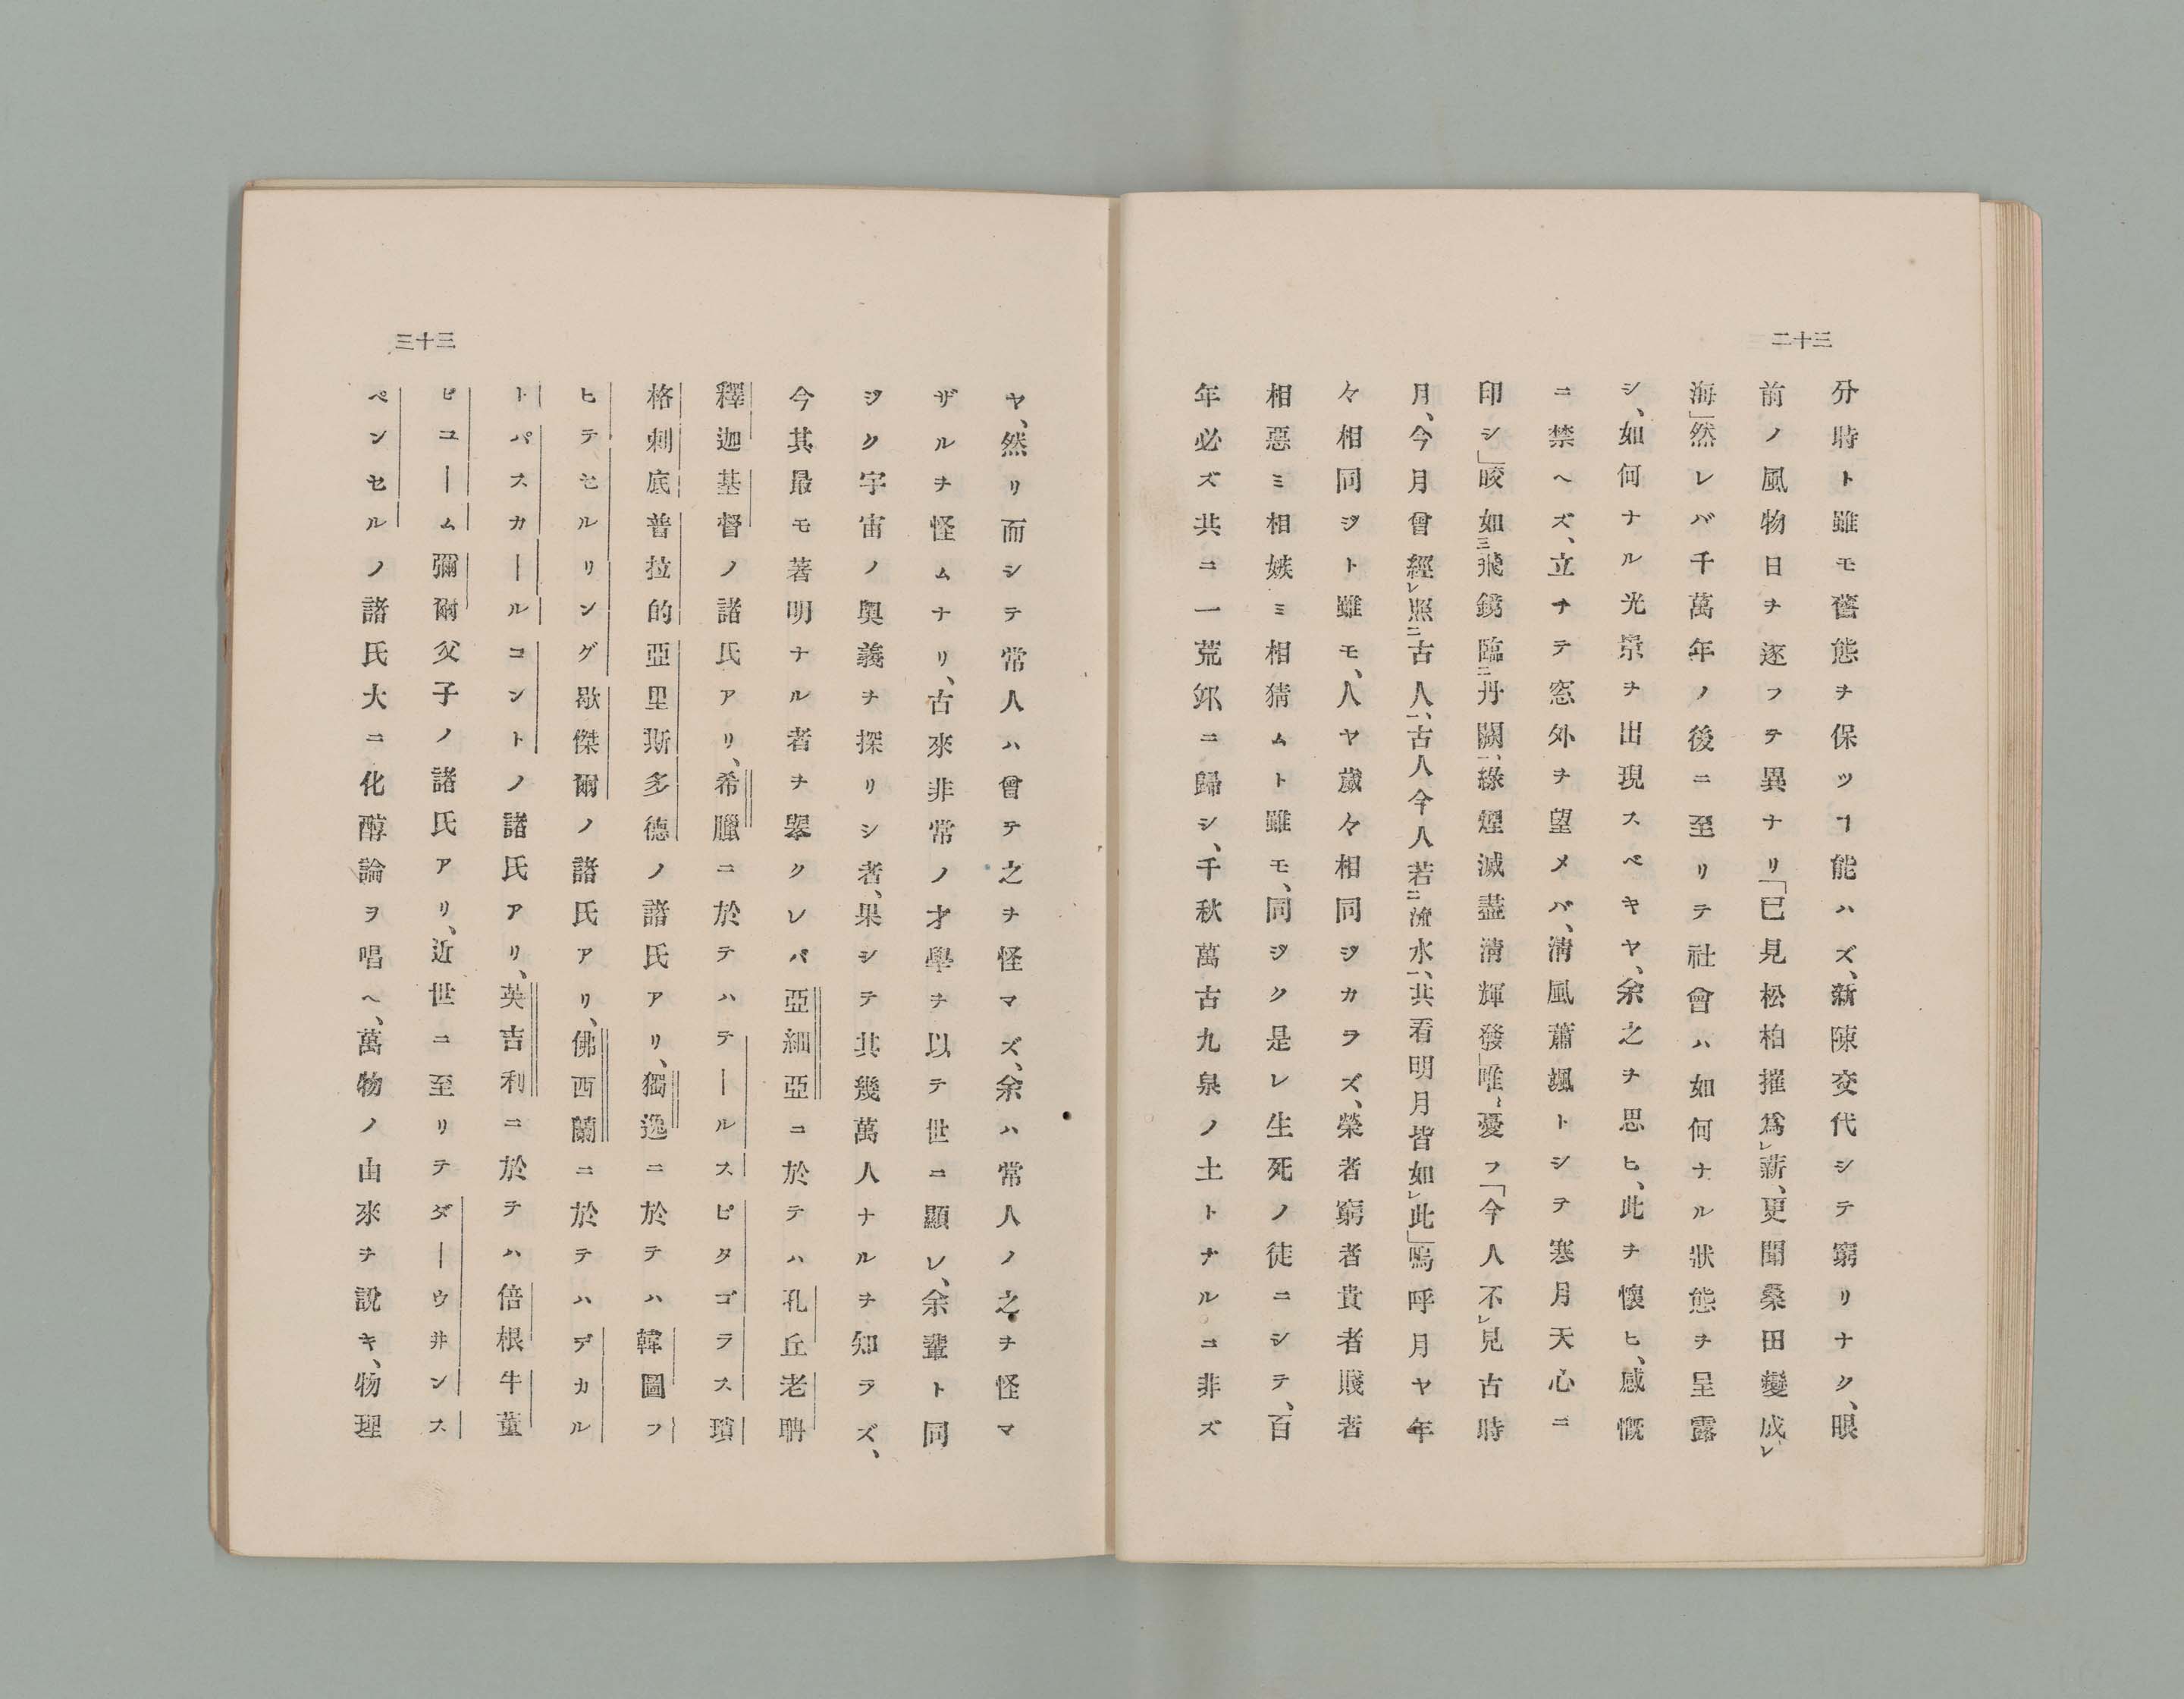 三十二
分時ト雖モ舊態ヲ保ツヿ能ハズ、新陳交代シテ窮リナク、眼
前ノ風物日ヲ逐フテ異ナリ「已見松柏摧爲レ薪、更聞桑田變成レ
海」然レバ千萬年ノ後ニ至リテ社會ハ如何ナル狀態ヲ呈露
シ、如何ナル光景ヲ出現スベキヤ、余之ヲ思ヒ、此ヲ懷ヒ、感慨
ニ禁ヘズ、立チテ窓外ヲ望メバ、淸風蕭颯トシテ寒月天心ニ
印シ」皎如三飛鏡臨二丹闕一、綠煙滅盡淸輝發」唯〻憂フ「今人不レ見古時
月、今月曾經レ照二古人一、古人今人若二流水一、共看明月皆如レ此」嗚呼月ヤ年
々相同ジト雖モ、人ヤ歲々相同ジカラズ、榮者窮者貴者賤者
相惡ミ相嫉ミ相猜ムト雖モ、同ジク是レ生死ノ徒ニシテ、百
年必ズ共ニ一荒邱ニ歸シ、千秋萬古九泉ノ土トナルニ非ズ
三十三
ヤ、然リ而シテ常人ハ曾テ之ヲ怪マズ、余ハ常人ノ之ヲ怪マ
ザルヲ怪ムナリ、古來非常ノ才學ヲ以テ世ニ顯レ、余輩ト同
ジク宇宙ノ奧義ヲ探リシ者、果シテ其幾萬人ナルヲ知ラズ、
今其最モ著明ナル者ヲ擧クレバ亞細亞ニ於テハ孔丘老聃
釋迦基督ノ諸氏アリ、希臘ニ於テハテールスピタゴラス瑣
格刺底普拉的亞里斯多德ノ諸氏アリ、獨逸ニ於テハ韓圖フ
ヒテセルリング歇傑爾ノ諸氏アリ、佛西蘭ニ於テハデカル
トパスカールコントノ諸氏アリ、英吉利ニ於テハ倍根牛董
ヒユーム彌爾父子ノ諸氏アリ、近世ニ至リテダーウ井ンス
ペンセルノ諸氏大ニ化醇論ヲ唱ヘ、萬物ノ由來ヲ說キ、物理